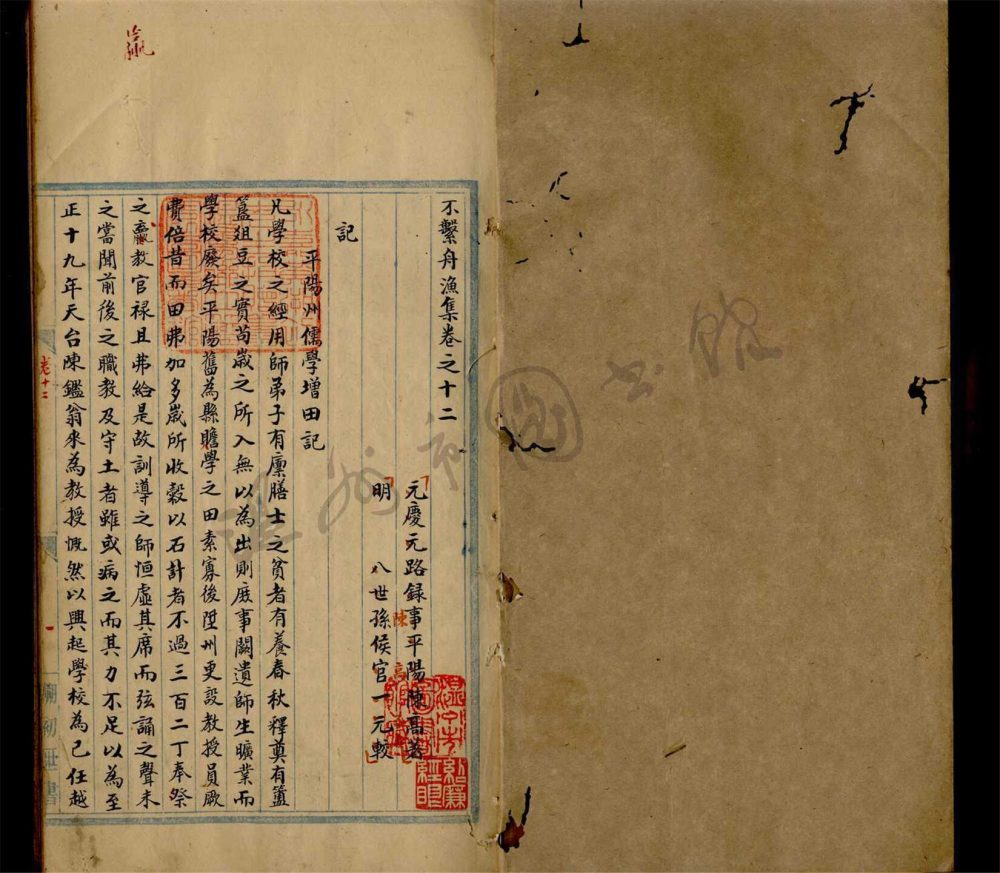 不繫舟漁集卷之十二
元慶元路録事平陽陳高著
明 八世孫侯官一元較
陳高
記
平陽州儒學增田記
凡學校之經用師弟子有廩膳士之貧者有養春秋釋奠有簠
簋俎豆之實苟歲之所入無以為出則庶事闕遺師生曠業而
學校廢矣平陽舊為縣贍學之田素寡後陞州更設教授員厥
費倍昔而田弗加多歲所收穀以石計者不過三百二丁奉祭
之羸教官禄且弗給是故訓導之師恒虛其席而弦誦之聲未
之嘗聞前後之職教及守土者雖或病之而其力不足以為至
正十九年天台陳鑑翁來為教授慨然以興起學校為己任越
卷十二
一